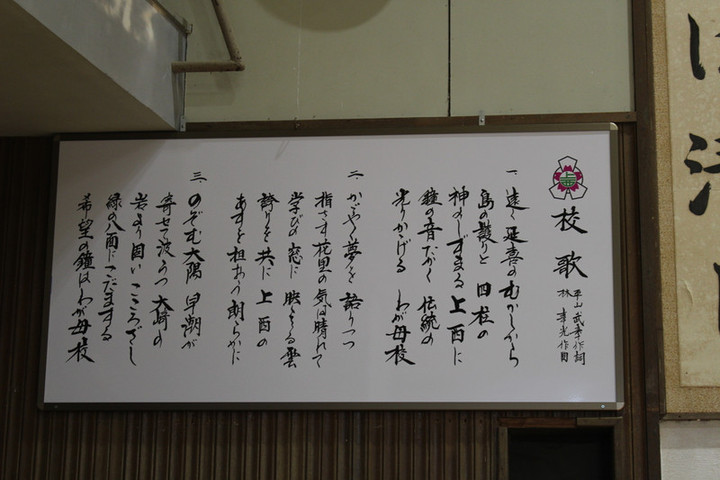 校歌
平山武章作詞
林幸光作曲
一、遠く延喜のむかしから
島の護りと四社の
神のしずまる上西に
鐘の音たかく伝統の
光りかゝげるわが母校
二、かゞやく夢を語りつつ
指さす花里の気は晴れて
学びの窓に映える雲
誇りを共に上西の
あすを担おう朗らかに
三、のぞむ大隅早潮が
寄せて波うつ大崎の
岩より固いこころざし
緑の八西にこだまする
希望の鐘はわが母校